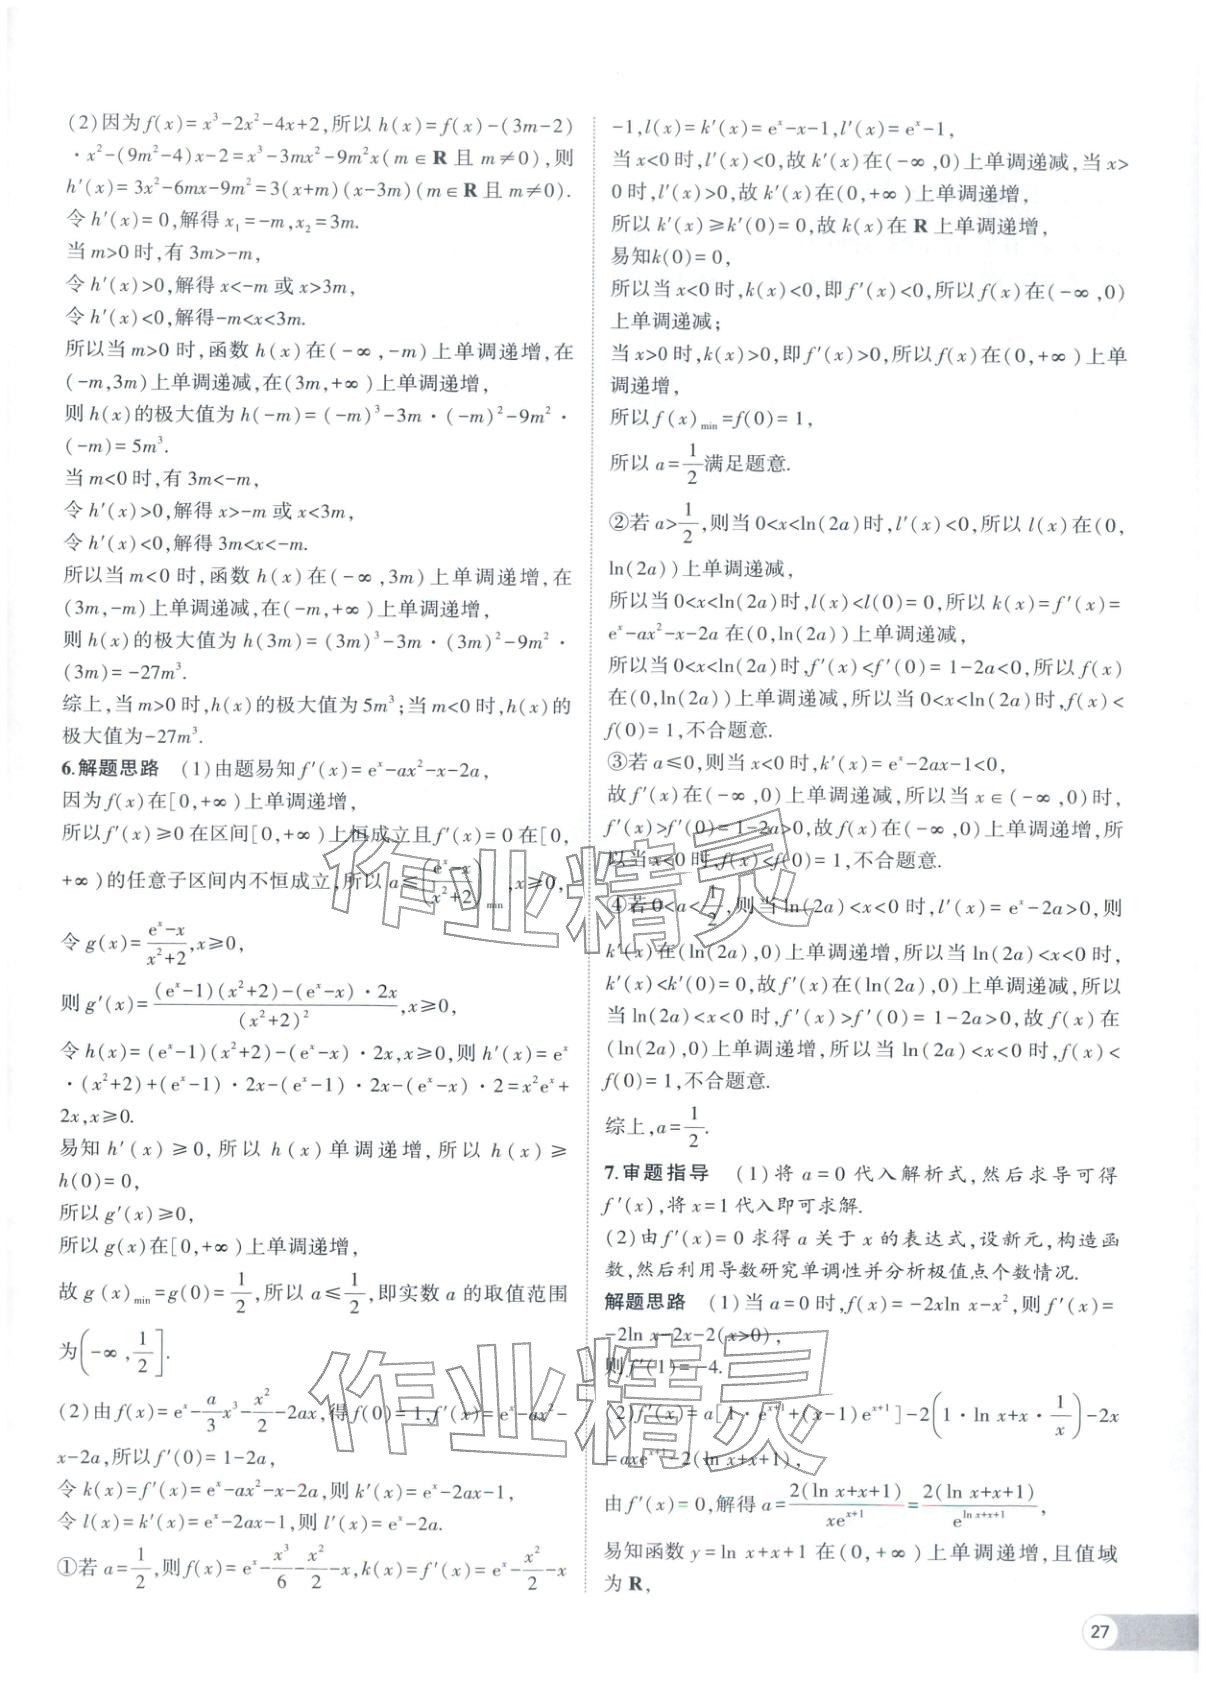 (2)因为f(x)=x³-2x²-4x+2,所以h(x)=f(x)-(3m-2)
·x²-(9m²-4)x-2=x³-3mx²-9m²x(m∈R且m≠0),则
h′(x)=3x²-6mx-9m²=3(x+m)(x-3m)(m∈R且m≠0).
令h′(x)=0,解得x₁=-m,x₂=3m.
当m>0时,有3m>-m,
令h′(x)>0,解得x<-m或x>3m,
令h′(x)<0,解得-m<x<3m.
所以当m>0时,函数h(x)在(-∞,-m)上单调递增,在
(-m,3m)上单调递减,在(3m,+∞)上单调递增,
则h(x)的极大值为h(-m)=(-m)³-3m·(-m)²-9m²·
(-m)=5m³.
当m<0时,有3m<-m,
令h′(x)>0,解得x>-m或x<3m,
令h′(x)<0,解得3m<x<-m.
所以当m<0时,函数h(x)在(-∞,3m)上单调递增,在
(3m,-m)上单调递减,在(-m,+∞)上单调递增,
则h(x)的极大值为h(3m)=(3m)³-3m·(3m)²-9m²·
(3m)=-27m³.
综上,当m>0时,h(x)的极大值为5m³;当m<0时,h(x)的
极大值为-27m³.
6.解题思路 (1)由题易知f′(x)=eˣ-ax²-x-2a,
因为f(x)在[0,+∞)上单调递增,
所以f′(x)≥0在区间[0,+∞)上恒成立且f′(x)=0在[0,
+∞)的任意子区间内不恒成立,所以a≤((eˣ-x)/(x²+2))min,x≥0,
令g(x)=(eˣ-x)/(x²+2),x≥0,
则g′(x)=((eˣ-1)(x²+2)-(eˣ-x)·2x)/(x²+2)²,x≥0,
令h(x)=(eˣ-1)(x²+2)-(eˣ-x)·2x,x≥0,则h′(x)=eˣ
·(x²+2)+(eˣ-1)·2x-(eˣ-1)·2x-(eˣ-x)·2=x²eˣ+
2x,x≥0.
易知h′(x)≥0,所以h(x)单调递增,所以h(x)≥
h(0)=0,
所以g′(x)≥0,
所以g(x)在[0,+∞)上单调递增,
故g(x)min=g(0)=1/2,所以a≤1/2,即实数a的取值范围
为(-∞,1/2].
(2)由f(x)=eˣ-a/3x³-x²/2-2ax,得f(0)=1,f′(x)=eˣ-ax²-
x-2a,所以f′(0)=1-2a,
令k(x)=f′(x)=eˣ-ax²-x-2a,则k′(x)=eˣ-2ax-1,
令l(x)=k′(x)=eˣ-2ax-1,则l′(x)=eˣ-2a.
①若a=1/2,则f(x)=eˣ-x³/6-x²/2-x,k(x)=f′(x)=eˣ-x²/2-x
-1,l(x)=k′(x)=eˣ-x-1,l′(x)=eˣ-1,
当x<0时,l′(x)<0,故k′(x)在(-∞,0)上单调递减,当x>
0时,l′(x)>0,故k′(x)在(0,+∞)上单调递增,
所以k′(x)≥k′(0)=0,故k(x)在R上单调递增,
易知k(0)=0,
所以当x<0时,k(x)<0,即f′(x)<0,所以f(x)在(-∞,0)
上单调递减;
当x>0时,k(x)>0,即f′(x)>0,所以f(x)在(0,+∞)上单
调递增,
所以f(x)min=f(0)=1,
所以a=1/2满足题意.
②若a>1/2,则当0<x<ln(2a)时,l′(x)<0,所以l(x)在(0,
ln(2a))上单调递减,
所以当0<x<ln(2a)时,l(x)<l(0)=0,所以k(x)=f′(x)=
eˣ-ax²-x-2a在(0,ln(2a))上单调递减,
所以当0<x<ln(2a)时,f′(x)<f′(0)=1-2a<0,所以f(x)
在(0,ln(2a))上单调递减,所以当0<x<ln(2a)时,f(x)<
f(0)=1,不合题意.
③若a≤0,则当x<0时,k′(x)=eˣ-2ax-1<0,
故f′(x)在(-∞,0)上单调递减,所以当x∈(-∞,0)时,
f′(x)>f′(0)=1-2a>0,故f(x)在(-∞,0)上单调递增,所
以当x<0时,f(x)<f(0)=1,不合题意.
④若0<a<1/2,则当ln(2a)<x<0时,l′(x)=eˣ-2a>0,则
k′(x)在(ln(2a),0)上单调递增,所以当ln(2a)<x<0时,
k′(x)<k′(0)=0,故f′(x)在(ln(2a),0)上单调递减,所以
当ln(2a)<x<0时,f′(x)>f′(0)=1-2a>0,故f(x)在
(ln(2a),0)上单调递增,所以当ln(2a)<x<0时,f(x)<
f(0)=1,不合题意.
综上,a=1/2.
7.审题指导 (1)将a=0代入解析式,然后求导可得
f′(x),将x=1代入即可求解.
(2)由f′(x)=0求得a关于x的表达式,设新元,构造函
数,然后利用导数研究单调性并分析极值点个数情况.
解题思路 (1)当a=0时,f(x)=-2xln x-x²,则f′(x)=
-2ln x-2x-2(x>0),
则f′(1)=-4.
(2)f′(x)=a[1·eˣ⁺¹+(x-1)eˣ⁺¹]-2(1·ln x+x·1/x)-2x
=axeˣ⁺¹-2(ln x+x+1),
由f′(x)=0,解得a=2(ln x+x+1)/(xeˣ⁺¹)=2(ln x+x+1)/e^(ln x+x+1),
易知函数y=ln x+x+1在(0,+∞)上单调递增,且值域
为R,
作业精灵
作业精灵
27